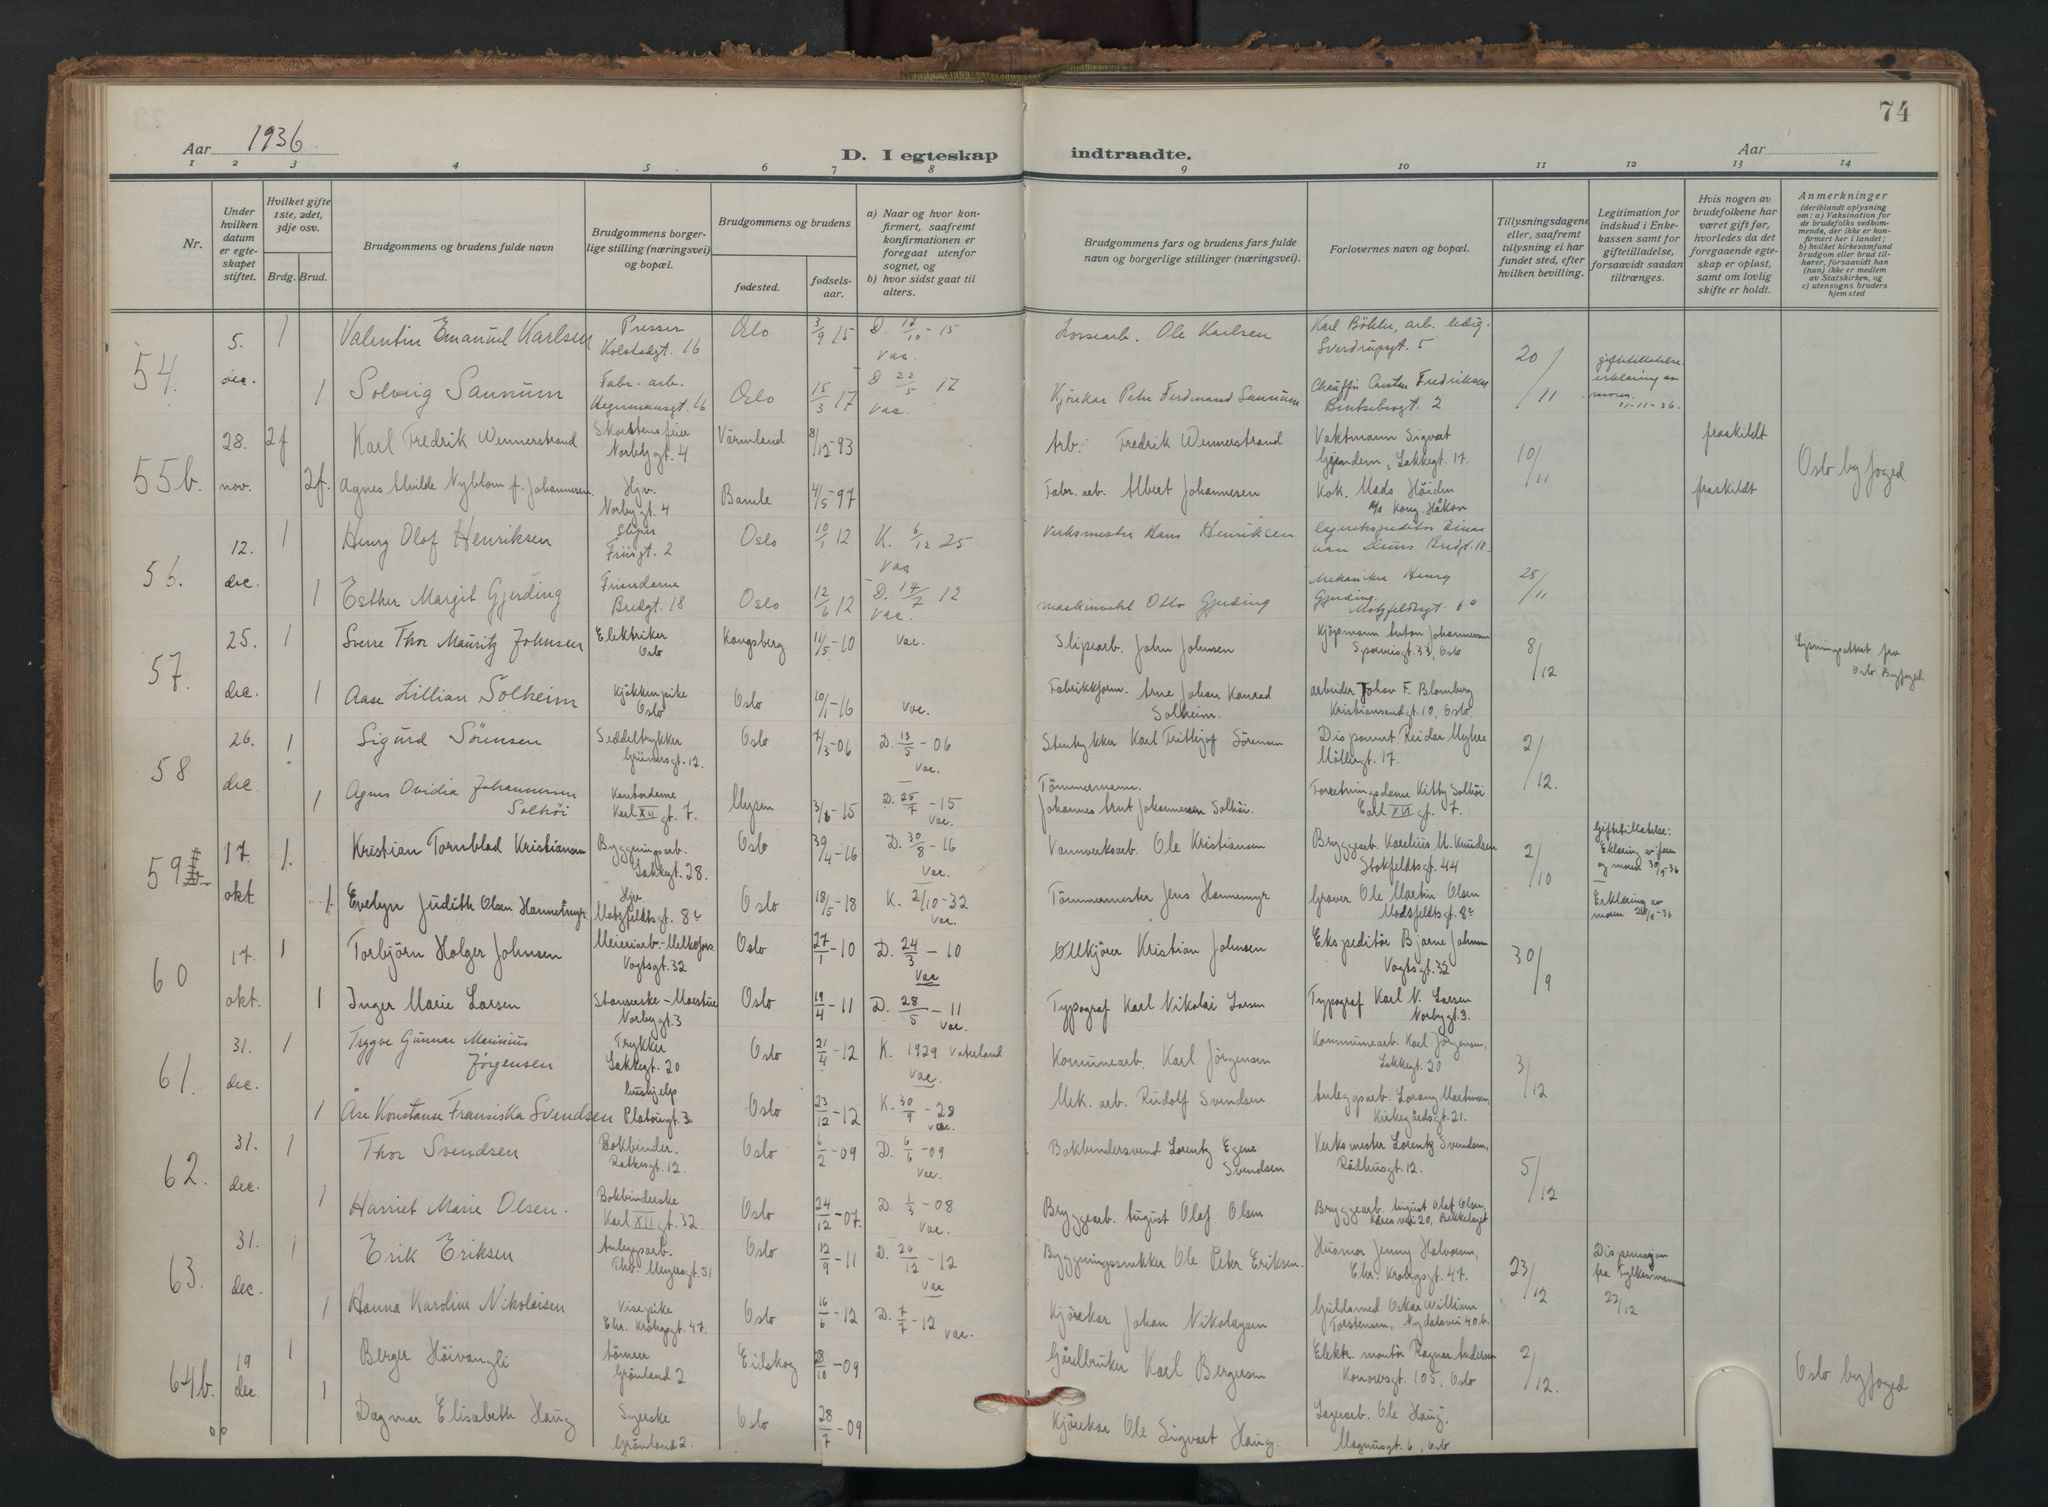 74
Aar 1936.
D. I egteskap indtraadte.
Aar
1 2 3 4 5 6 7 8 9 10 11 12 13 14
Nr.
Under hvilken datum er egteskapet stiftet.
Hvilket gifte 1ste, 2det, 3dje osv.
Brdg. Brud.
Brudgommens og brudens fulde navn
Brudgommens borgerlige stilling (næringsvei) og bopæl.
Brudgommens og brudens
fødested.
fødselsaar.
a) Naar og hvor konfirmert, saafremt konfirmationen er foregaat utenfor sognet, og
b) hvor sidst gaat til alters.
Brudgommens fars og brudens fars fulde navn og borgerlige stillinger (næringsvei).
Forlovernes navn og bopæl.
Tillysningsdagene eller, saafremt tillysning ei har fundet sted, efter hvilken bevilling.
Legitimation for indskud i Enkekassen samt for giftetilladelse, forsaavidt saadan tiltrænges.
Hvis nogen av brudefolkene har været gift før, hvorledes da det foregaaende egteskap er opløst, samt om lovlig skifte er holdt.
Anmerkninger
(deriblandt oplysning om: a) Vaksination for de brudefolks vedkommende, der ikke er konfirmert her i landet; b) hvilket kirkesamfund brudgom eller brud tilhører, forsaavidt han (hun) ikke er medlem av Statskirken, og c) utensogns bruders hjemsted
54. 5. dec. 1 Valentin Emanuel Karlsen Presser Kolstadgt. 16 Oslo 3/9 15 D. 17/10 - 15 Vac. Lossearb. Ole Karlsen Karl Böhler, arb. ledig. Sverdrupsgt. 5 20/11
1 Solveig Sannum Fabr. arb. Hegermannsgt. 16 Oslo 15/3 17 D 22/5 17 Vac. Kjørekar Peter Ferdinand Sannum 2 11-11-36.
55b. 28. nov. 2f Karl Fredrik Wennerstrand Skorstensfeier Norbygt. 4 Värmland 8/12-93 Arb. Fredrik Wennerstrand Vaktmann Sigvat Gjendem, Lakkegt. 17. 10/11 fraskildt Oslo byfoged
2f. Agnes Alvilde Nyblom f. Johannesen Hjv. Norbygt. 4 Bamle 4/5-97 Fabr. arb. Albert Johannesen Kok. Mads Höiden M/s Kong Håkon fraskildt
56. 12. dec. 1 Henry Olof Henriksen Sliper Friisgt. 2 Oslo 10/1 12 K. 6/12 25 Vac Verksmester Hans Henriksen Bredgt. 18 25/11
1 Esther Margit Gjerding Frisrdame Bredgt. 18 Oslo 12/6 12 D. 14/7 12 Vac. Otto Gjerding Mekaniker Henry Gjerding. Motzfeldtsgt. 6
57. 25. dec. 1 Sverre Thor Mauritz Johnsen Elektriker Oslo Kongsberg 11/5-10 Vac. Slipearb. John Johnsen Kjöpmann Anton Johannessen Sporveisgt. 33, Oslo 8/12 Lysningsattest fra Oslo Byfoged
1 Aase Lillian Solheim Kjøkkenpike Oslo Oslo 10/1-16 Vac. Fabrikkform. Arne Johan Konrad Solheim. arbeider Johan F. Blomberg Kristiansandgt. 10, Oslo.
58 26. dec 1 Sigurd Sörensen Seddeltrykker Grünersgt. 12. Oslo 7/3-06 D. 13/5 - 06 Vac. Stentrykker Karl Frithjof Sörensen Disponent Reidar Myhre Möllergt. 17. 2/12.
1 Agnes Ovidia Johannesen Solhöi Kontordame Karl XII gt. 7. Mysen 3/6-15 D. 25/7 - 15 Vac. Tömmermann. Johannes Arnt Johannessen Solhöi. Forretningsdame Kitty Solhöi Carl XII gt. 7.
59 17. okt 1. Kristian Tornblad Kristiansen Byggningsarb. Lakkegt. 28. Oslo 30/4-16 D. 30/8 - 16 Vac. Vannverksarb. Ole Kristiansen Bryggearb. Karelius M. Knudsen Stokfeldtsgt. 44 2/10 Giftetillatelse: Erklæring av faren og moren 30/9-36
1. Evelyn Judith Olsen Hannemyr. Hjv. Motzfeldtsgt. 8c Oslo 18/5-18 K. 2/10-32 Vac. Tömmermester Jens Hannemyr Graver Ole Martin Olsen Motsfeldtsgt. 8c Erklæring av moren 24/9-36
60 17. okt. 1 Torbjörn Holger Johnsen Meieriarb.-Melkefors. Vogtsgt. 32 Oslo 27/1-10 D. 24/3 - 10 Vac Ölkjörer Kristian Johnsen Ekspeditör Bjarne Johnsen Vogtsgt. 32 30/9
1 Inger Marie Larsen Stanserske Norbygt. 3 Oslo 19/4-11 D. 28/5 - 11 Vac. Typograf Karl Nikolai Larsen Typograf Karl N. Larsen Norbygt. 3.
61. 31. dec. 1 Trygve Gunnar Marinius Jørgensen Trykker Lakkegt. 20 Oslo 21/4-12 K. 1929 Vaterland Vac. Komunearb. Karl Jörgensen Kommunearb. Karl Jörgensen, Lakkegt. 20 3/12
1 Åse Konstanse Fransiska Svendsen hushjelp Platousgt. 3 Oslo 23/12-12 K. 30/9 - 28 Vac. Mek. arb. Rudolf Svendsen Anleggsarb. Lorang Martinsen, Kirkegårdsgt. 21.
62. 31. dec. 1 Thor Svendsen Bokbinder. Ratkesgt. 12. Oslo 6/2-09 D. 6/6 - 09 Vac. Bokbindersvend Lorentz Egene Svendsen Verksmester Lorentz Svendsen, Rådhusgt. 12. 5/12
1 Harriet Marie Olsen. Bokbinderske Karl XII gt. 32. Oslo 24/12-07. D. 1/3 - 08 Vac. Bryggearb. August Olaf Olsen Bryggearb. August Olaf Olsen, 20, Bekkelaget
63. 31. dec. 1 Erik Eriksen Anleggsarb. Thv. Meyersgt. 51 Oslo 12/9-11 D. 26/12 - 12 Vac Byggningssnekker Ole Peter Eriksen. Husmor Jenny Halvorsen, Chr. Krohgsgt. 47. 23/12 Dispensasjon fra fylkesmannen 22/12
1 Hanna Karoline Nikolaisen Visepike Chr. Krohgsgt. 47. Oslo 16/6-12 D. 7/7 - 12 Vac. Kjörekar Johan Nikolaysen Guldsmed Oskar William Torstensen, Nydalsvei 40.b.
64b. 19 dec. 1 Berger Höivangli tömrer Grönland 2 Eidskog 28/10-09 Gårdbruker Karl Bergersen Elektr. montör Ragnar Andersen Konowsgt. 105, Oslo 2/12. Oslo byfoged
1 Dagmar Elisabeth Haug Syerske Grönland 2. Oslo 28/7-09 Kjörekar Ole Sigvart Haug. Lagerarb. Ole Haug. Magnusgt. 6, Oslo